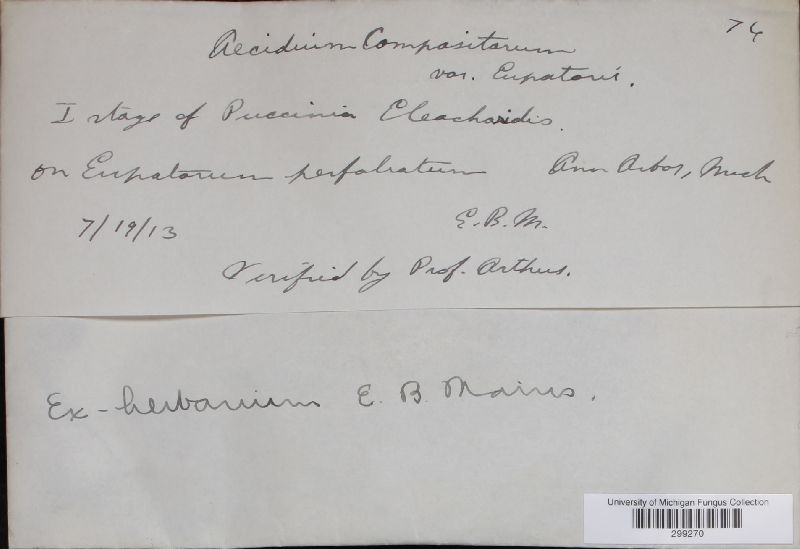 74
Aecidium Compositarum
var. Eupatorii.
I stage of Puccinia Eleocharidis.
on Eupatorium perfoliatum Ann Arbor, Mich
7/19/13 E. B. M.
Verified by Prof. Arthur.
Ex-herbarium E. B. Mains.
University of Michigan Fungus Collection
299270